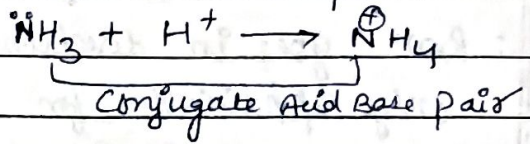 N̈H₃ + H⁺ ⟶ N⊕H₄
Conjugate Acid Base pair